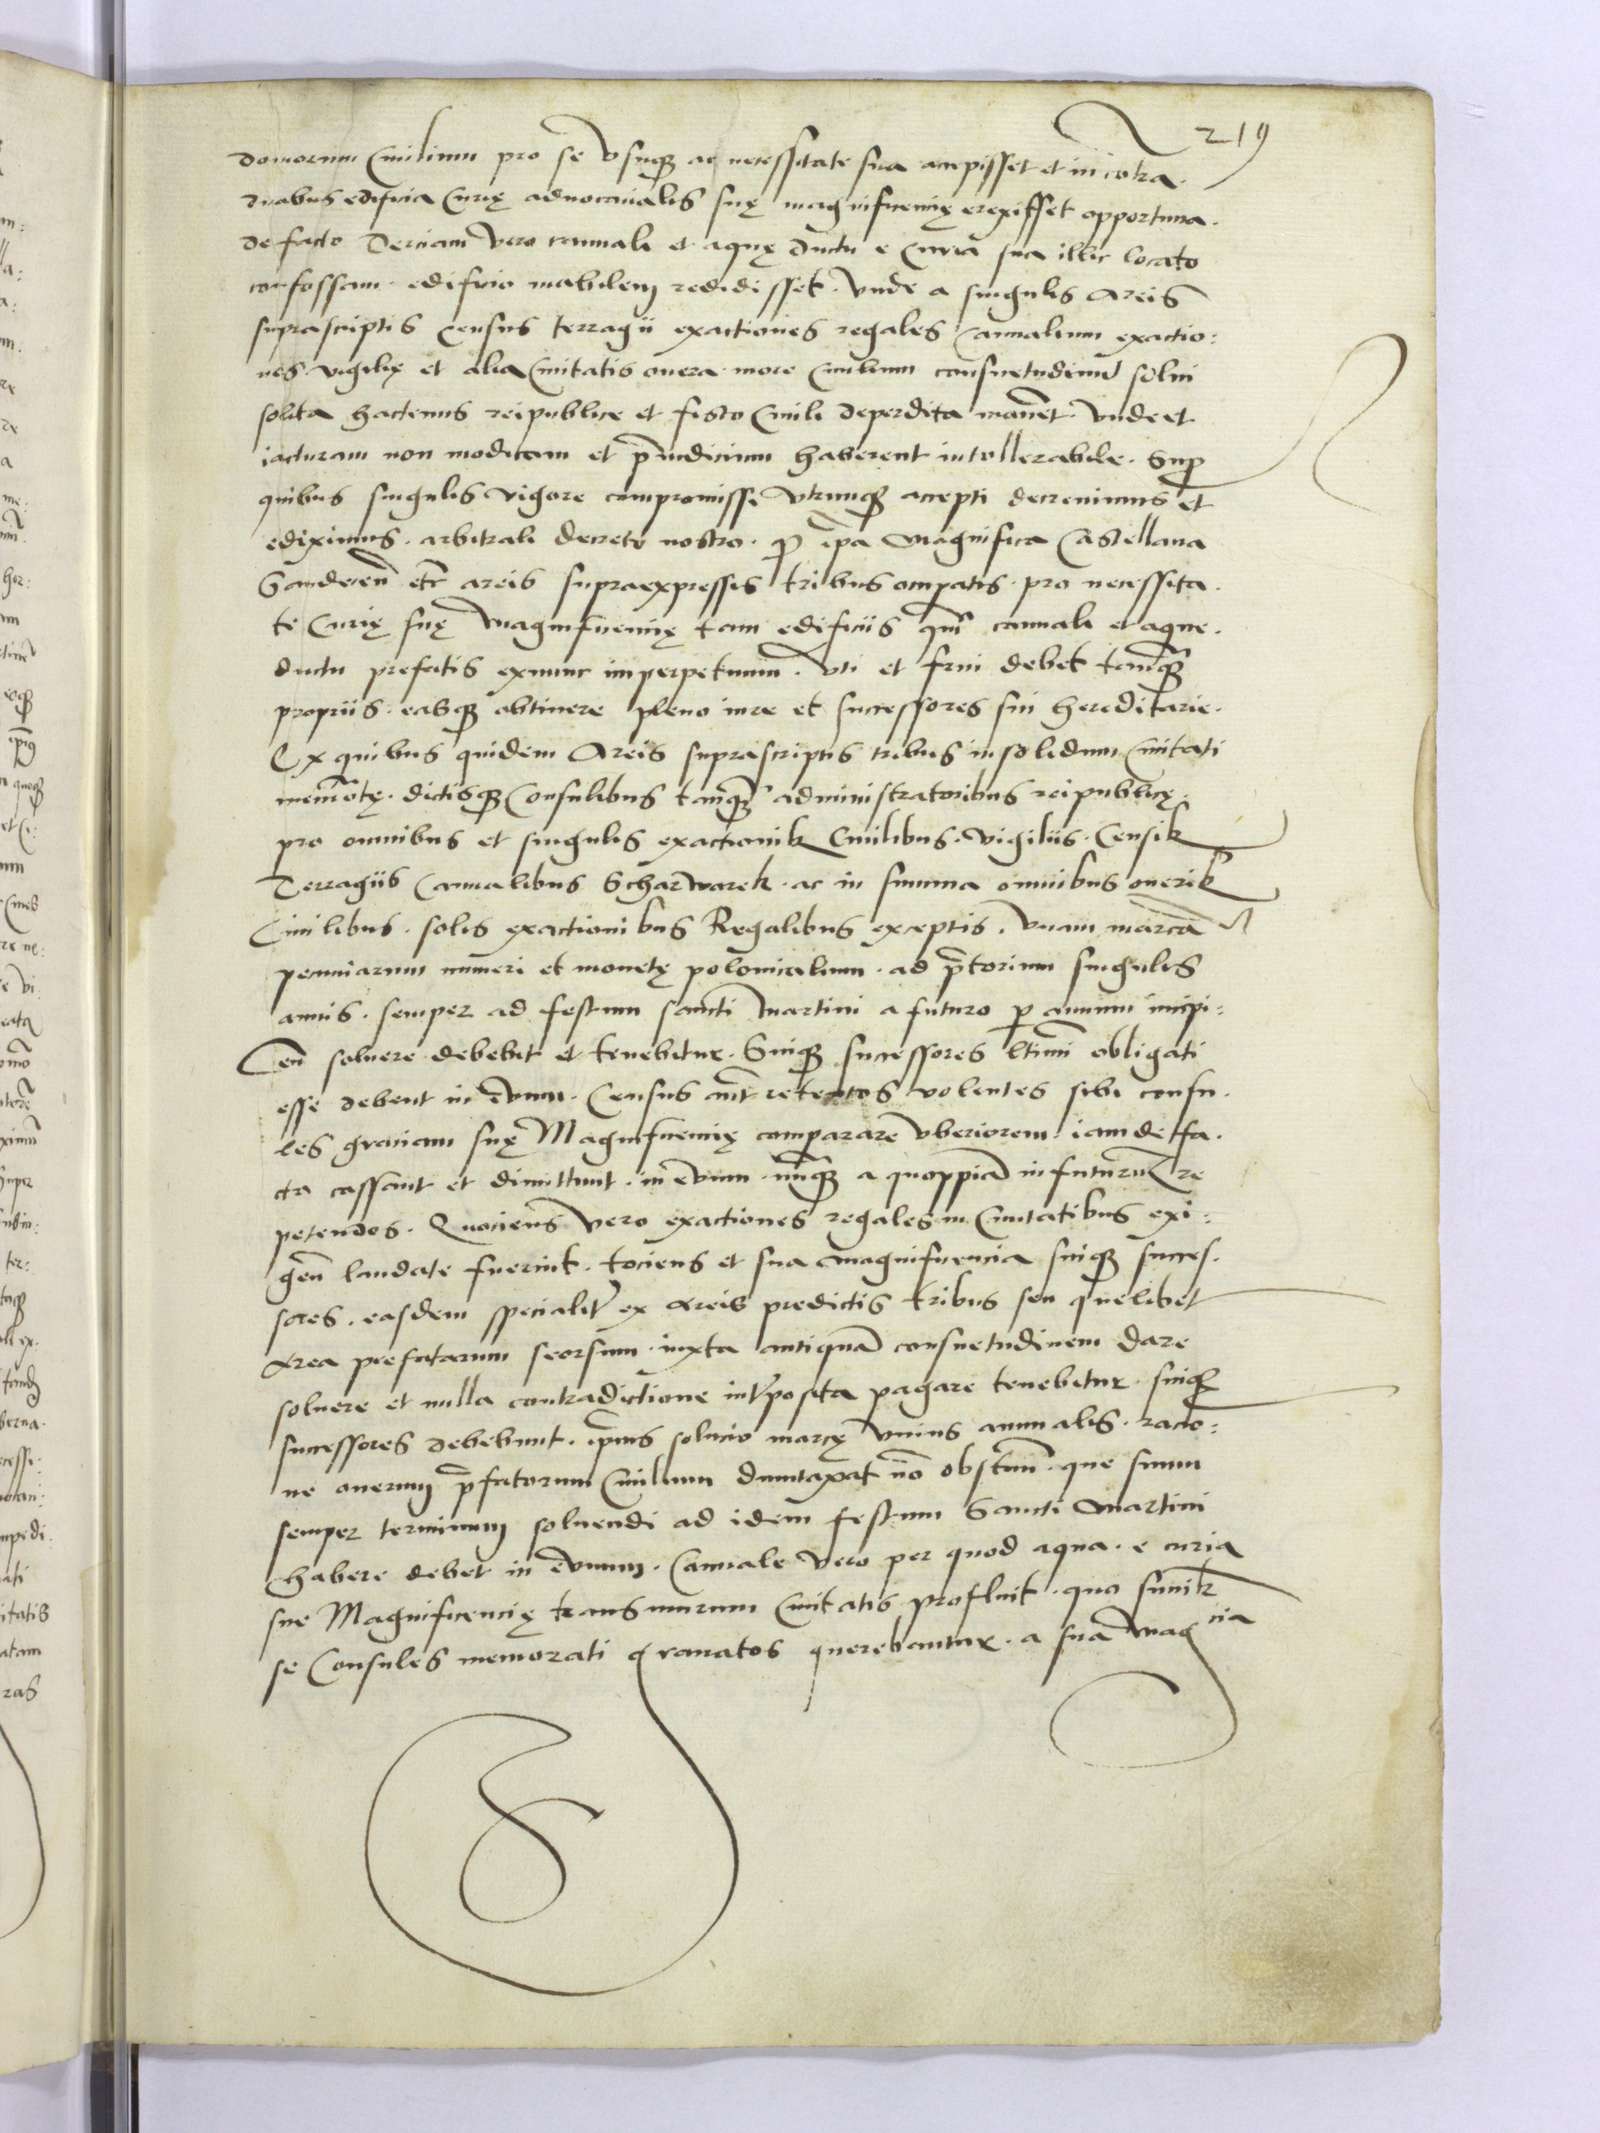 219
domorum Ciuilium pro se vsuq̧ ac necessitate sua accepisset et in
duabus edificia Curię aduocacialis suę magnificencię erexisset opportuna.
de facto Terciam vero cannali et aquę ductu e Curia sua illic locato
confossam edificio inabilem redidisset. vnde a singulis Areis
suprascriptis Census terragii exactiones regales Cannalium exactio:
nes vigilię et alia Ciuitatis onera more Ciuilium solui
solita hactenus reipublice et fisco Ciuili deperdita manēt. vnde et
iacturam non modicam et p̄iudicium haberent intollerabile. Sup̱
quibus singulis vigore compromissi vtrimq̧ accepti decreuimus et
ediximus. arbitrali decreto nostro. ip̄a Magnifica Castellana
etc̄ areis supraexpressis tribus occupatis. pro necessita.
te Curię suę Magnificencię tam edificiis qm̄ cannali et aque.
ductu prefatis exnunc imperpetuum. vti et frui debet tamq̧
propriis. easq̧ obtinere pleno iure et successores sui hereditarie.
Ex quibus quidem Areis suprascriptis tribus insolidum Ciuitati
memōtę. dictisq̧ Consulibus tanq̧ administratoribus reipublicę.
pro omnibus et singulis exactionib Ciuilibus. vigiliis. Censib
Terragiis Cannalibus Scharwarek. ac in summa omnibus onerib
Ciuilibus. solis exactionibus Regalibus exceptis. vnam marcā
pecuniarum numeri et monetę polonicalium. ad p̄torium singulis
annis. semper ad festum sancti Martini a futuro p̱ annum incipi:
eñ soluere debebit et tenebitur. Suiq̧ successores obligati
esse debent in ēuum. Census aūt retentos volentes sibi consu.
les graciam suę Magnificencię comparare vberiorem. iam de fa.
cto cassant et dimittunt. in ēuum. nūq̧ a quoppiā in futurum re
petendos. Quociens vero exactiones regales in Ciuitatibus exi:
geñ laudate fuerint. tociens et sua magnificencia suiq̧ succes.
sores. easdem specialit̄ ex areis predictis tribus seu quelibet
Area prefatarum seorsum. iuxta antiquā consuetudinem dare
soluere et nulla contradictione int̄posita pagare tenebitur. suiq̧
successores debebunt. ip̄ius solucio marcę vnius annualis. racio:
ne onerum p̄fatorum Ciuilium dumtaxat nō obstañ. que suum
semper terminum soluendi ad idem festum Sancti Martini
habere debet in ēuum. Cannale vero per quod aqua. e curia
sue Magnificencię trans murum Ciuitatis profluit. quo
se Consules memorati grauatos querebantur. a sua Mag cia